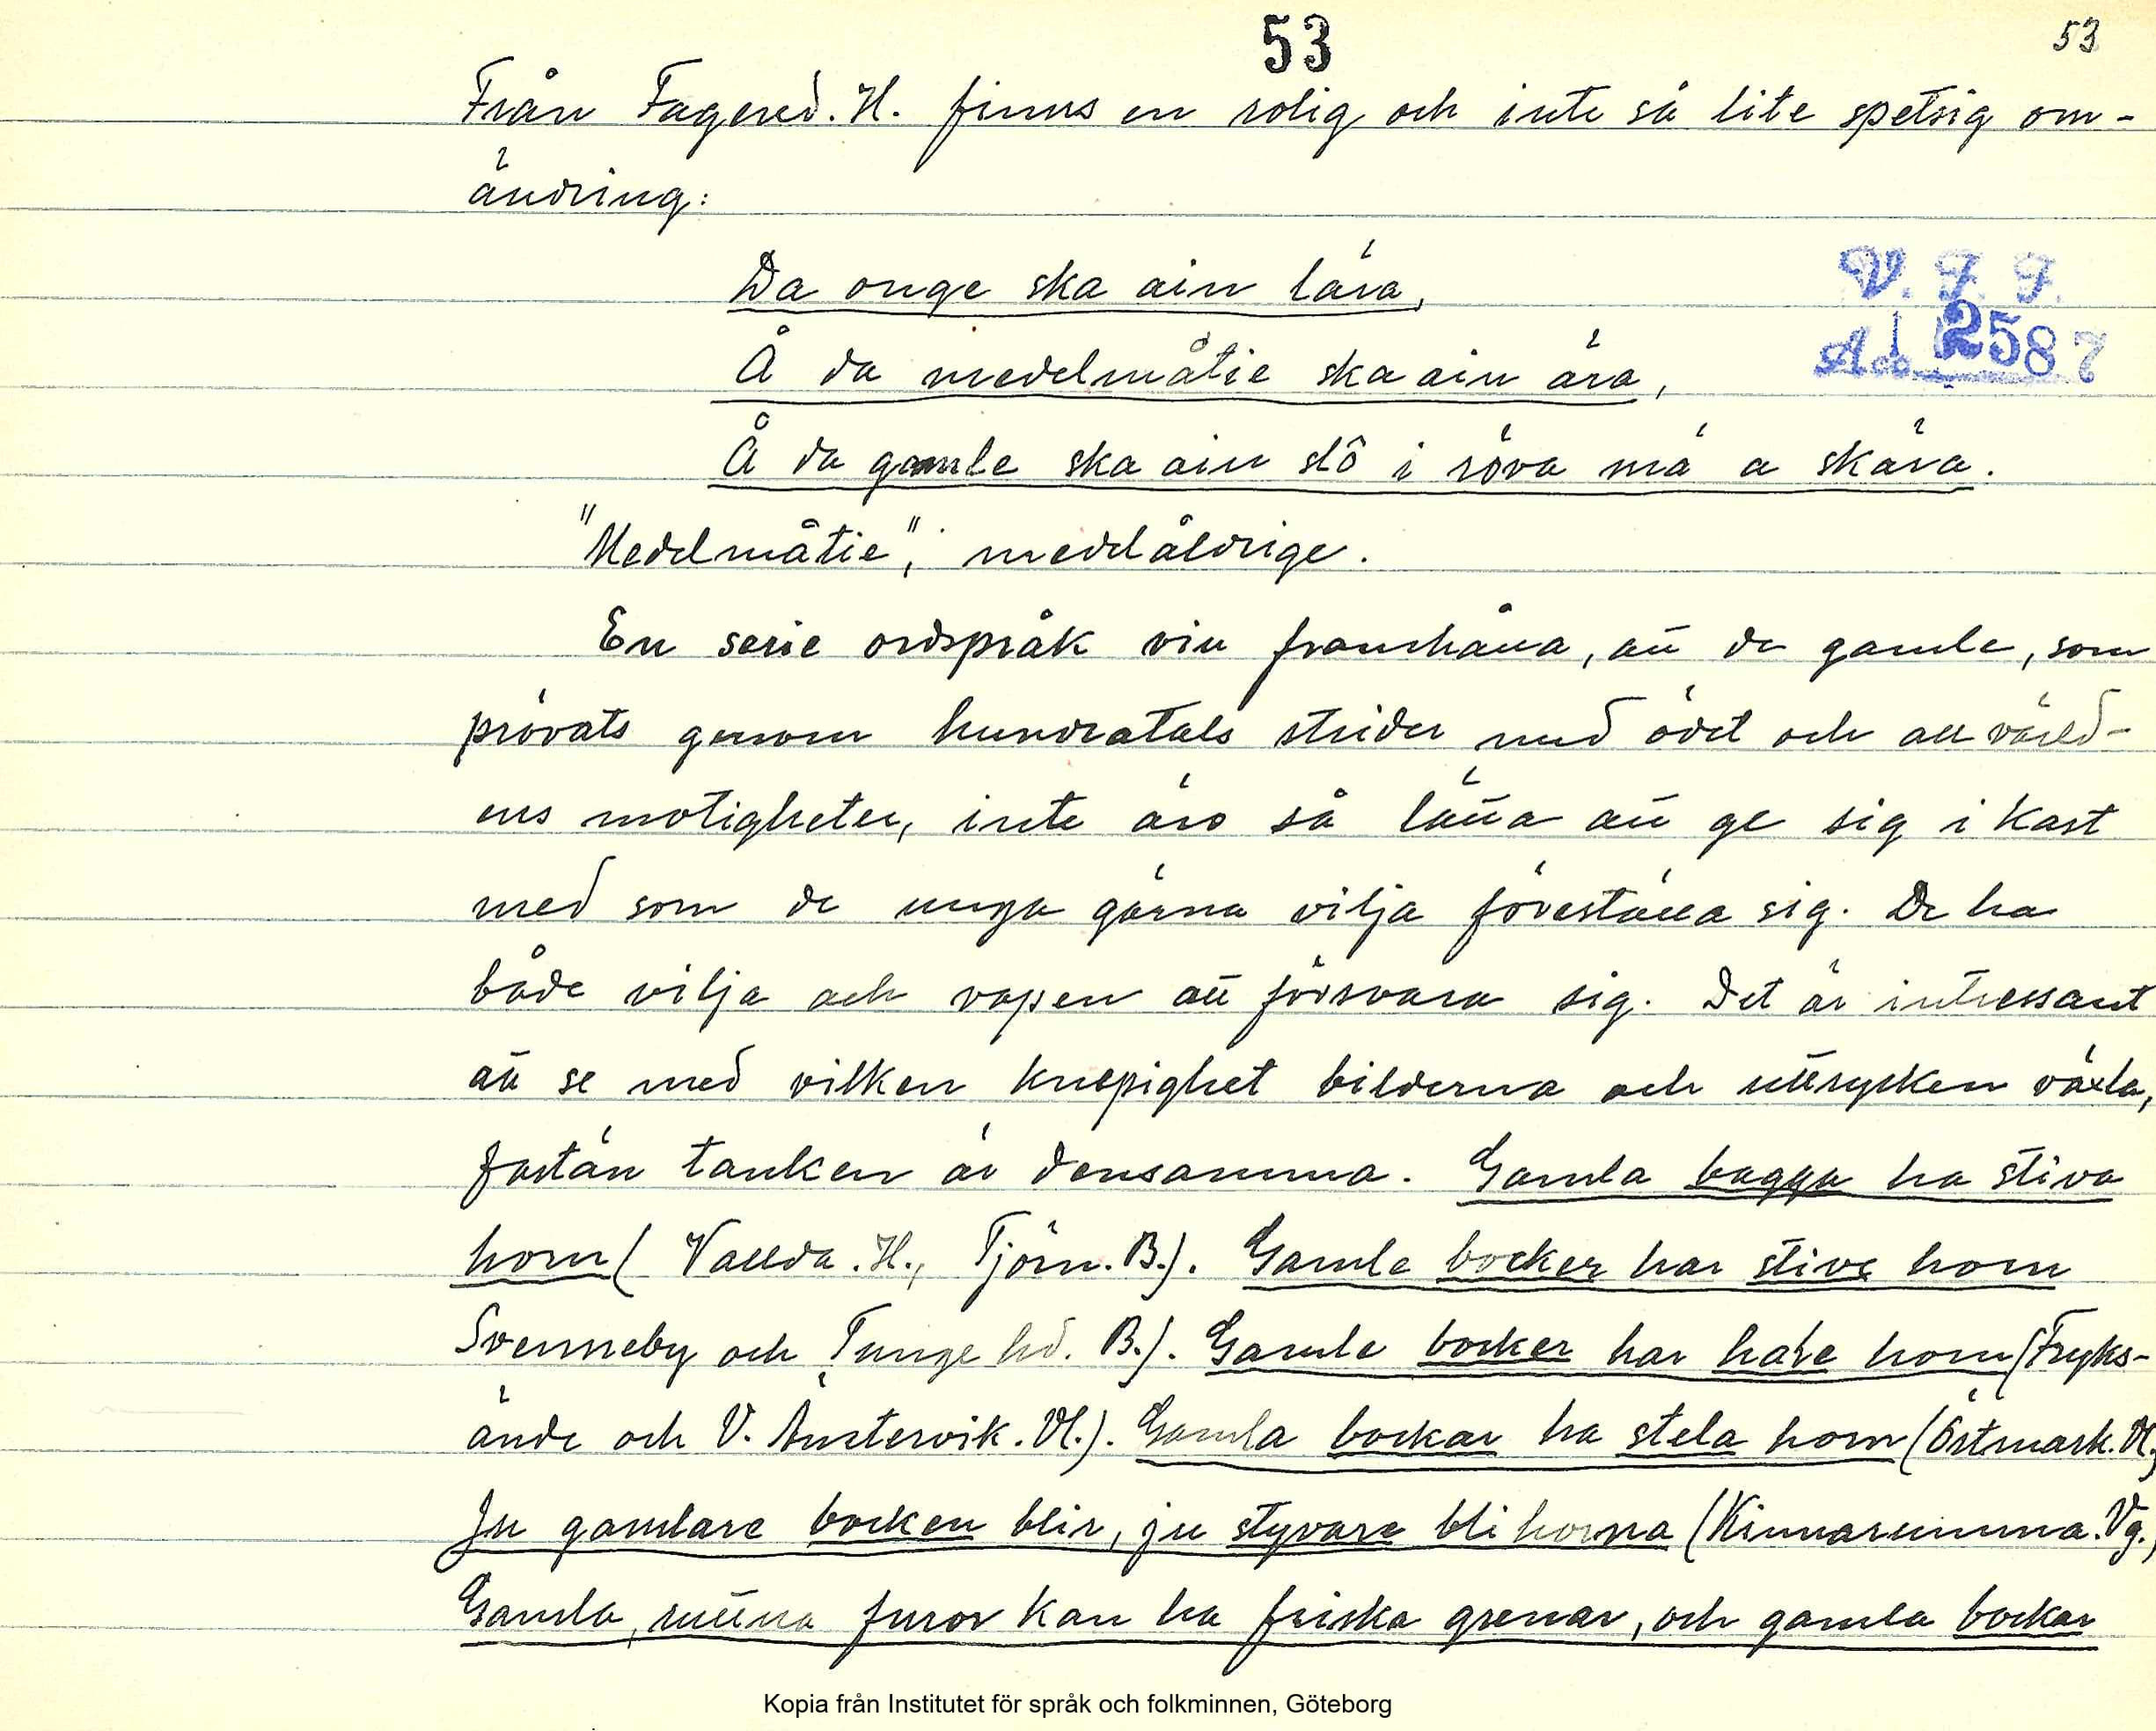 53
53
Från Fagered. H. finns en rolig och inte så lite spetsig om-
ändring:
Da onge ska ain lära,
V. F. F.
Å da medelmåtie ska ain ära,
Acc 2587
Å da gamle ska ain slô i röva mä a skära.
"Medelmåtie"; medelåldrige.
En serie ordspråk vill framhålla, att de gamle, som
prövats genom hundratals strider med ödet och all värld-
ens motigheter, inte äro så lätta att ge sig i kast
med som de unga gärna vilja föreställa sig. De ha
både vilja och vapen att försvara sig. Det är intressant
att se med vilken knepighet bilderna och uttrycken växla,
fastän tanken är densamma. Gamla bagga ha stiva
horn ( Vallda. H., Tjörn. B.). Gamle bocker har stive horn
Svenneby och Tunge hd. B.). Gamle bocker har hale horn (Fryks-
ände och V. Ämtervik. Vl.). Gamla bockar ha stela horn (Östmark. Vl.)
Ju gamlare bocken blir, ju styvare bli horna (Kinnarumma. Vg.)
Gamla, ruttna furor kan ha friska grenar, och gamla bockar
Kopia från Institutet för språk och folkminnen, Göteborg